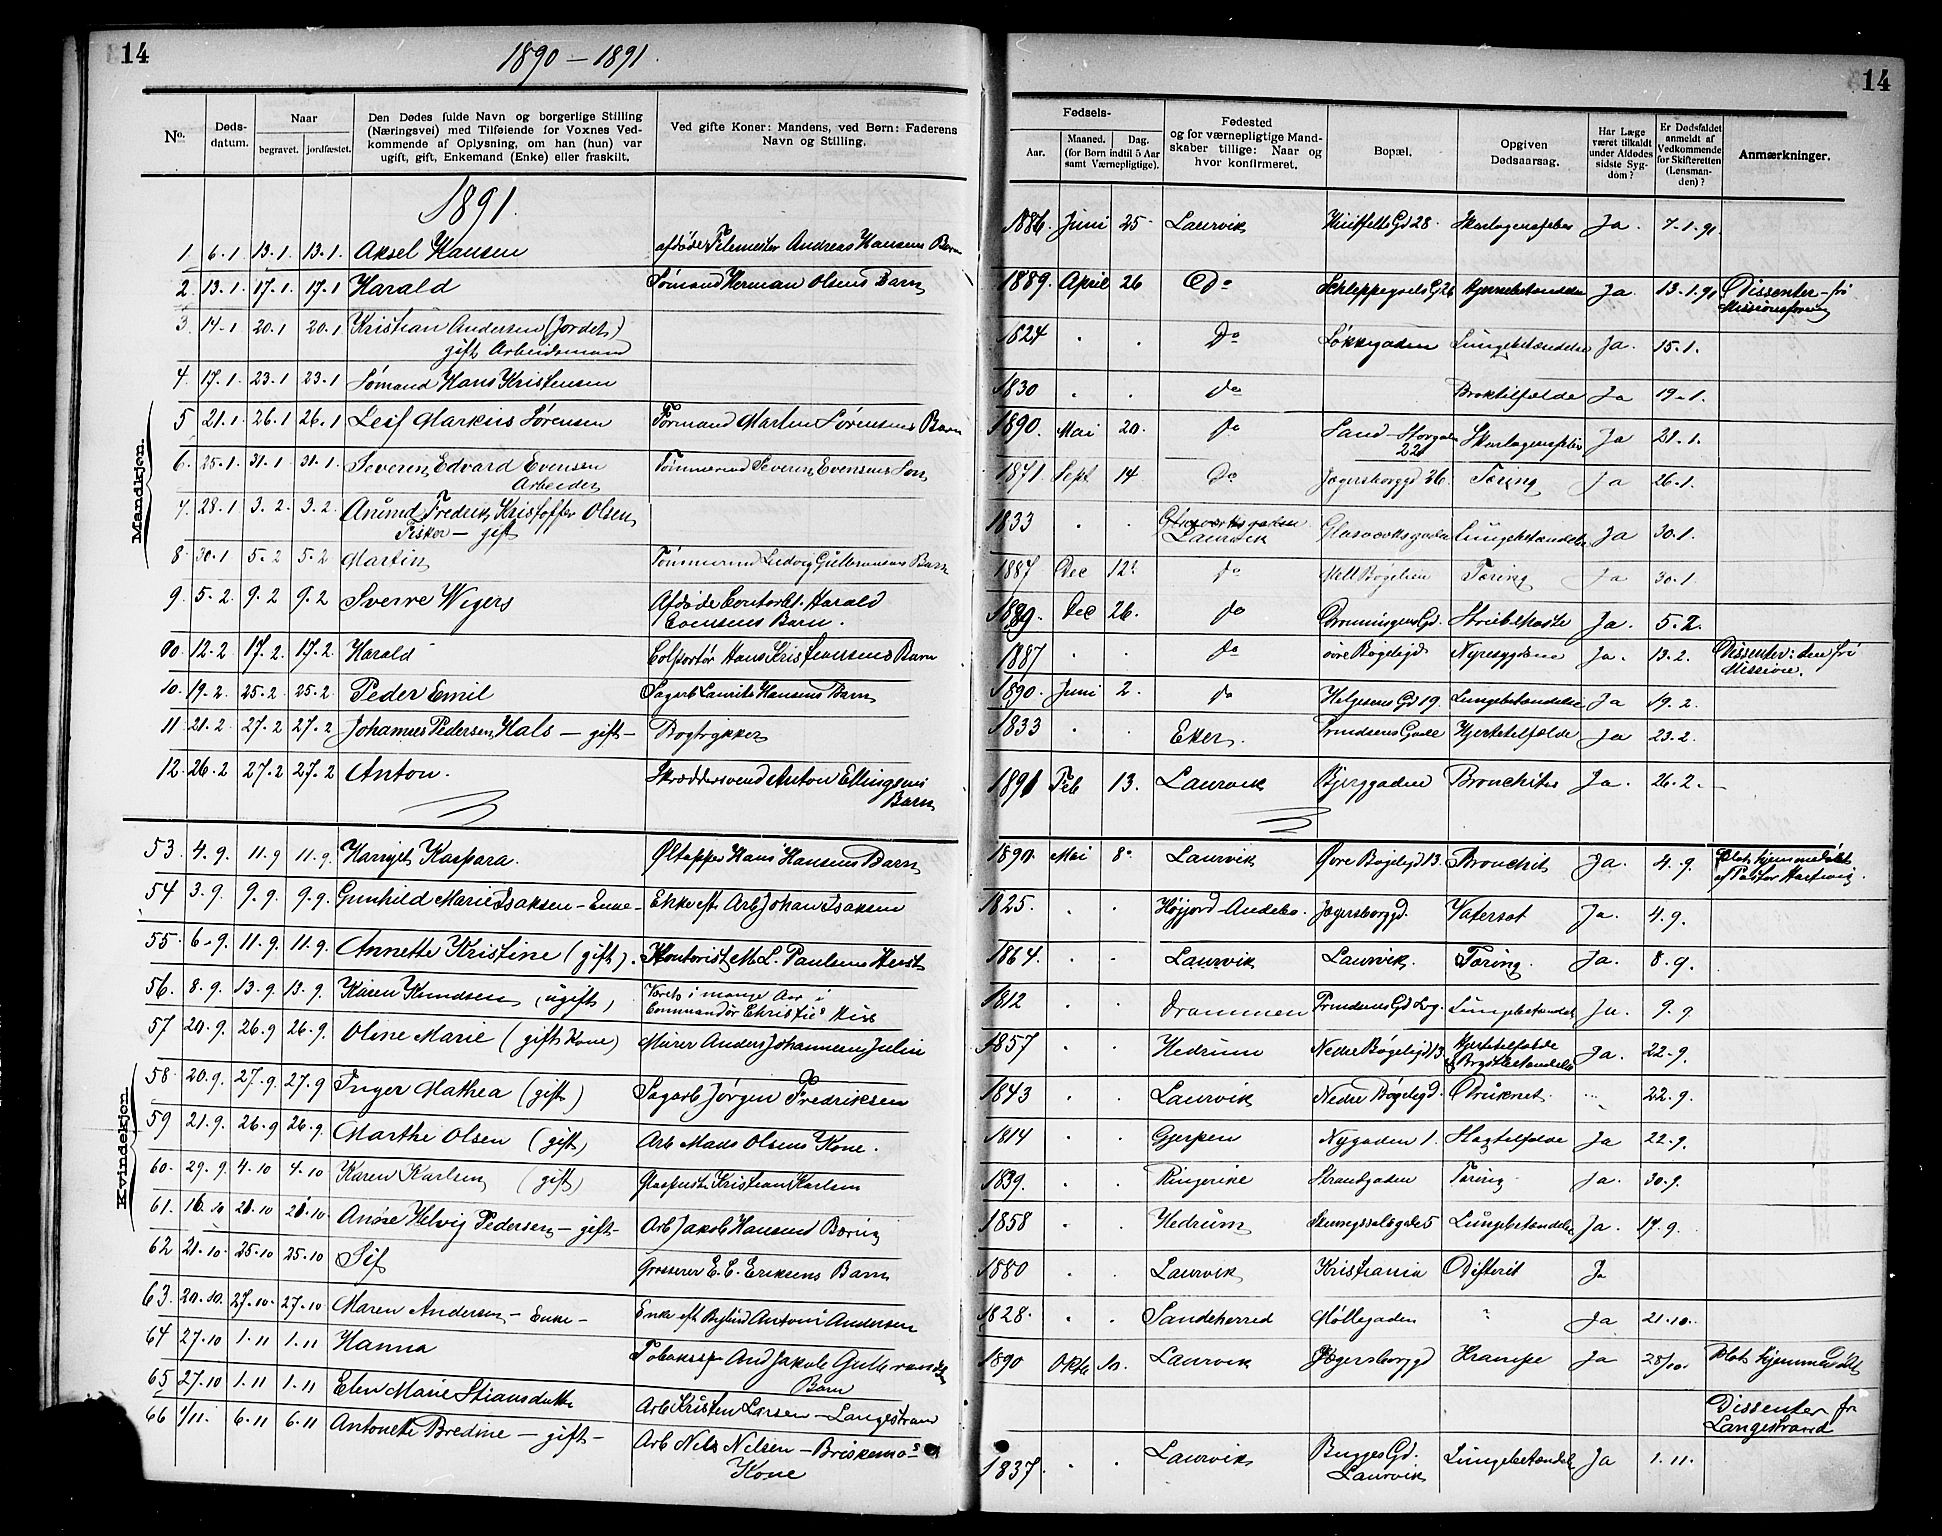 14
1890 – 1891.
No. Døds-datum. Naar begravet. jordfæstet. Den Dødes fulde Navn og borgerlige Stilling (Næringsvei) med Tilføiende for Voxnes Vedkommende af Oplysning, om han (hun) var ugift, gift, Enkemand (Enke) eller fraskilt. Ved gifte Koner: Mandens, ved Børn: Faderens Navn og Stilling.
1891.
Mandkjøn.
1 6.1 13.1 13.1 Aksel Hansen afdøde Filemester Andreas Hansens Barn
2 13.1. 17.1. 17.1 Harald Sømand Herman Olsens Barn
3. 14.1 20.1 20.1 Kristian Andersen (Jordet)
gift Arbeidsmand
4. 17.1. 23.1 23.1 Sømand Hans Kristensen
5 21.1 26.1 26.1 Leif Markus Sørensen Formand Martin Sørensens Barn
6. 25.1. 31.1 31.1 Severin Edvard Evensen Tømmermd Severin Evensens Søn
Arbeider
7. 28.1 3.2. 3.2 Anund Fredrik Kristoffer Olsen
Fisker – gift
8 30.1 5.2 5.2 Martin Tømmermd Ludvig Gulbransens Barn
9. 5.2. 9.2 9.2 Sverre Wigers Afdøde Contorbt. Harald
Evensens Barn.
00. 12.2 17.2. 17.2. Harald Colportør Hans Kristensens Barn
10. 19.2. 25.2 25.2 Peder Emil Sagarb Laurits Hansens Barn
11 21.2 27.2 27.2 Johannes Pedersen Hals – gift – Bogtrykker
12. 26.2 27.2 27.2 Anton. Skræddersvend Anton Ellingsens
Barn
Kvindekjøn
53. 4.9. 11.9 11.9. Harriet Kaspara. Øltapper Hans Hansens Barn
54 3.9 9.9 9.9. Gunhild Marie Isaksen – Enke – Enke eft Arb Johan Isaksen
55. 6.9. 11.9. 11.9. Annette Kristine (gift). Kontorist M. L. Paulsens
56. 8.9. 13.9. 13.9. Karen Knudsen (ugift) Været i mange Aar i
Commandør Christie's Hus
57 20.9. 26.9 26.9. Oline Marie (gift Kone) Murer Anders Johannesen Julin
58. 20.9. 27.9. 27.9 Inger Mathea (gift) Sagarb Jørgen Fredriksen
59 21.9. 26.9 26.9. Marthe Olsen (gift) Arb Mads Olsens Kone.
60. 29.9. 4.10 4.10 Karen Karlsen (gift) Glaspuster Kristian Karlsen
61. 16.10 20.10 20.10 Anne Helvig Pedersen – gift – Arb Jakob Hansens
62 21.10. 25.10 25.10 Sif Grosserer E. C. Eriksens Barn
63. 20.10. 27.10. 27.10 Maren Andersen – Enke – Enke eft Antoni Andersen
64 27.10 1.11 1.11 Hanna Tobaksarb And Jakob Gulbrandsens
Barn
65 27.10 1.11 1.11 Elen Marie Stiansdatter Arb Kristen Larsen – Langestrand
66 1/11. 6.11 6.11 Antonette Bredine – gift – Arb Nels Nelsen – Briskemo's
Kone
14
Fødsels- Aar. Maaned. Dag. (for Børn indtil 5 Aar samt Værnepligtige). Fødested og for værnepligtige Mandskaber tillige: Naar og hvor konfirmeret. Bopæl. Opgiven Dødsaarsag. Har Læge været tilkaldt under Afdødes sidste Sygdom? Er Dødsfaldet anmeldt af Vedkommende for Skifteretten (Lensmanden)? Anmærkninger.
1886. Juni 25 Laurvik Huitfelts Gd 28 Skarlagensfeber Ja. 7.1.91.
1889. April 26 Do Schleppegrels G 26 Hjernebetændelse Ja. 13.1.91 Dissenter – fri
Missionsforening
1824 . . Do Løkkegaden Lungebetændelse Ja. 15.1.
1830 . . do Broktilfælde Ja 19.1.
1890. Mai 20. do Sand – Storgaden
22 Skarlagensfeber Ja 21.1.
1871. Sept 14 Do Jegersborggd 26. Tæring Ja 26.1.
1833 . . Glasværksgaden
Laurvik Glasværksgaden Lungebetændelse Ja 30.1.
1887 Dec 12. do Mell Bøgelien Tæring Ja 30.1.
1889. Dec 26. do Dronningens Gd. Strubehoste Ja. 5.2.
1887 do øvre Bøgeligd Nyresygdom Ja. 13.2. Dissenter: den fri
Mission.
1890. Juni 2. do Helgesens Gd 19. Lungebetændelse Ja 19.2.
1833 . . Eker. Prindsens Gade Hjertetilfælde Ja 23.2.
1891 Feb 13. Laurvik Bjerggaden Bronchites Ja. 26.2.
1890. Mai 8. Laurvik Øvre Bøjeligd 13. Bronchit Ja. 4.9. Blot hjemmedøbt
af Pastor Hartwig.
1825. . . Høyjord – Andebo. Jegersborggd. Vatersot Ja. 4.9.
1864. . . Laurvik Laurvik. Tæring. Ja. 8.9.
1812 . . Drammen Prindsens Gd Lvg. Lungebetændelse Ja. 9.9
1857 . . Hedrum Nedre Bøgeligd 13 Hjertetilfælde
& Brystbetændelse Ja. 22.9.
1843 . . Laurvik Nedre Bøgeligd. Druknet. .. 22.9.
1814 . . Gjerpen Nygaden 1. Slagtilfælde Ja 22.9.
1839. . . Ringerike Strandgaden Tæring Ja. 30.9.
1858 . . Hedrum Lungebetændelse Ja. 17.9.
1880 . . Laurvik Kristiania Difterit Ja
1828. . . Sandeherred Møllegaden " Ja 21.10.
1890 Oktr Laurvik Jegersborggd Krampe Ja 28/10. Blot hjemmedøbt
Dissenter fr
Langestrand
1837. . . Laurvik Bugges Gd.
Laurvik Lungebetændelse Ja 1.11.